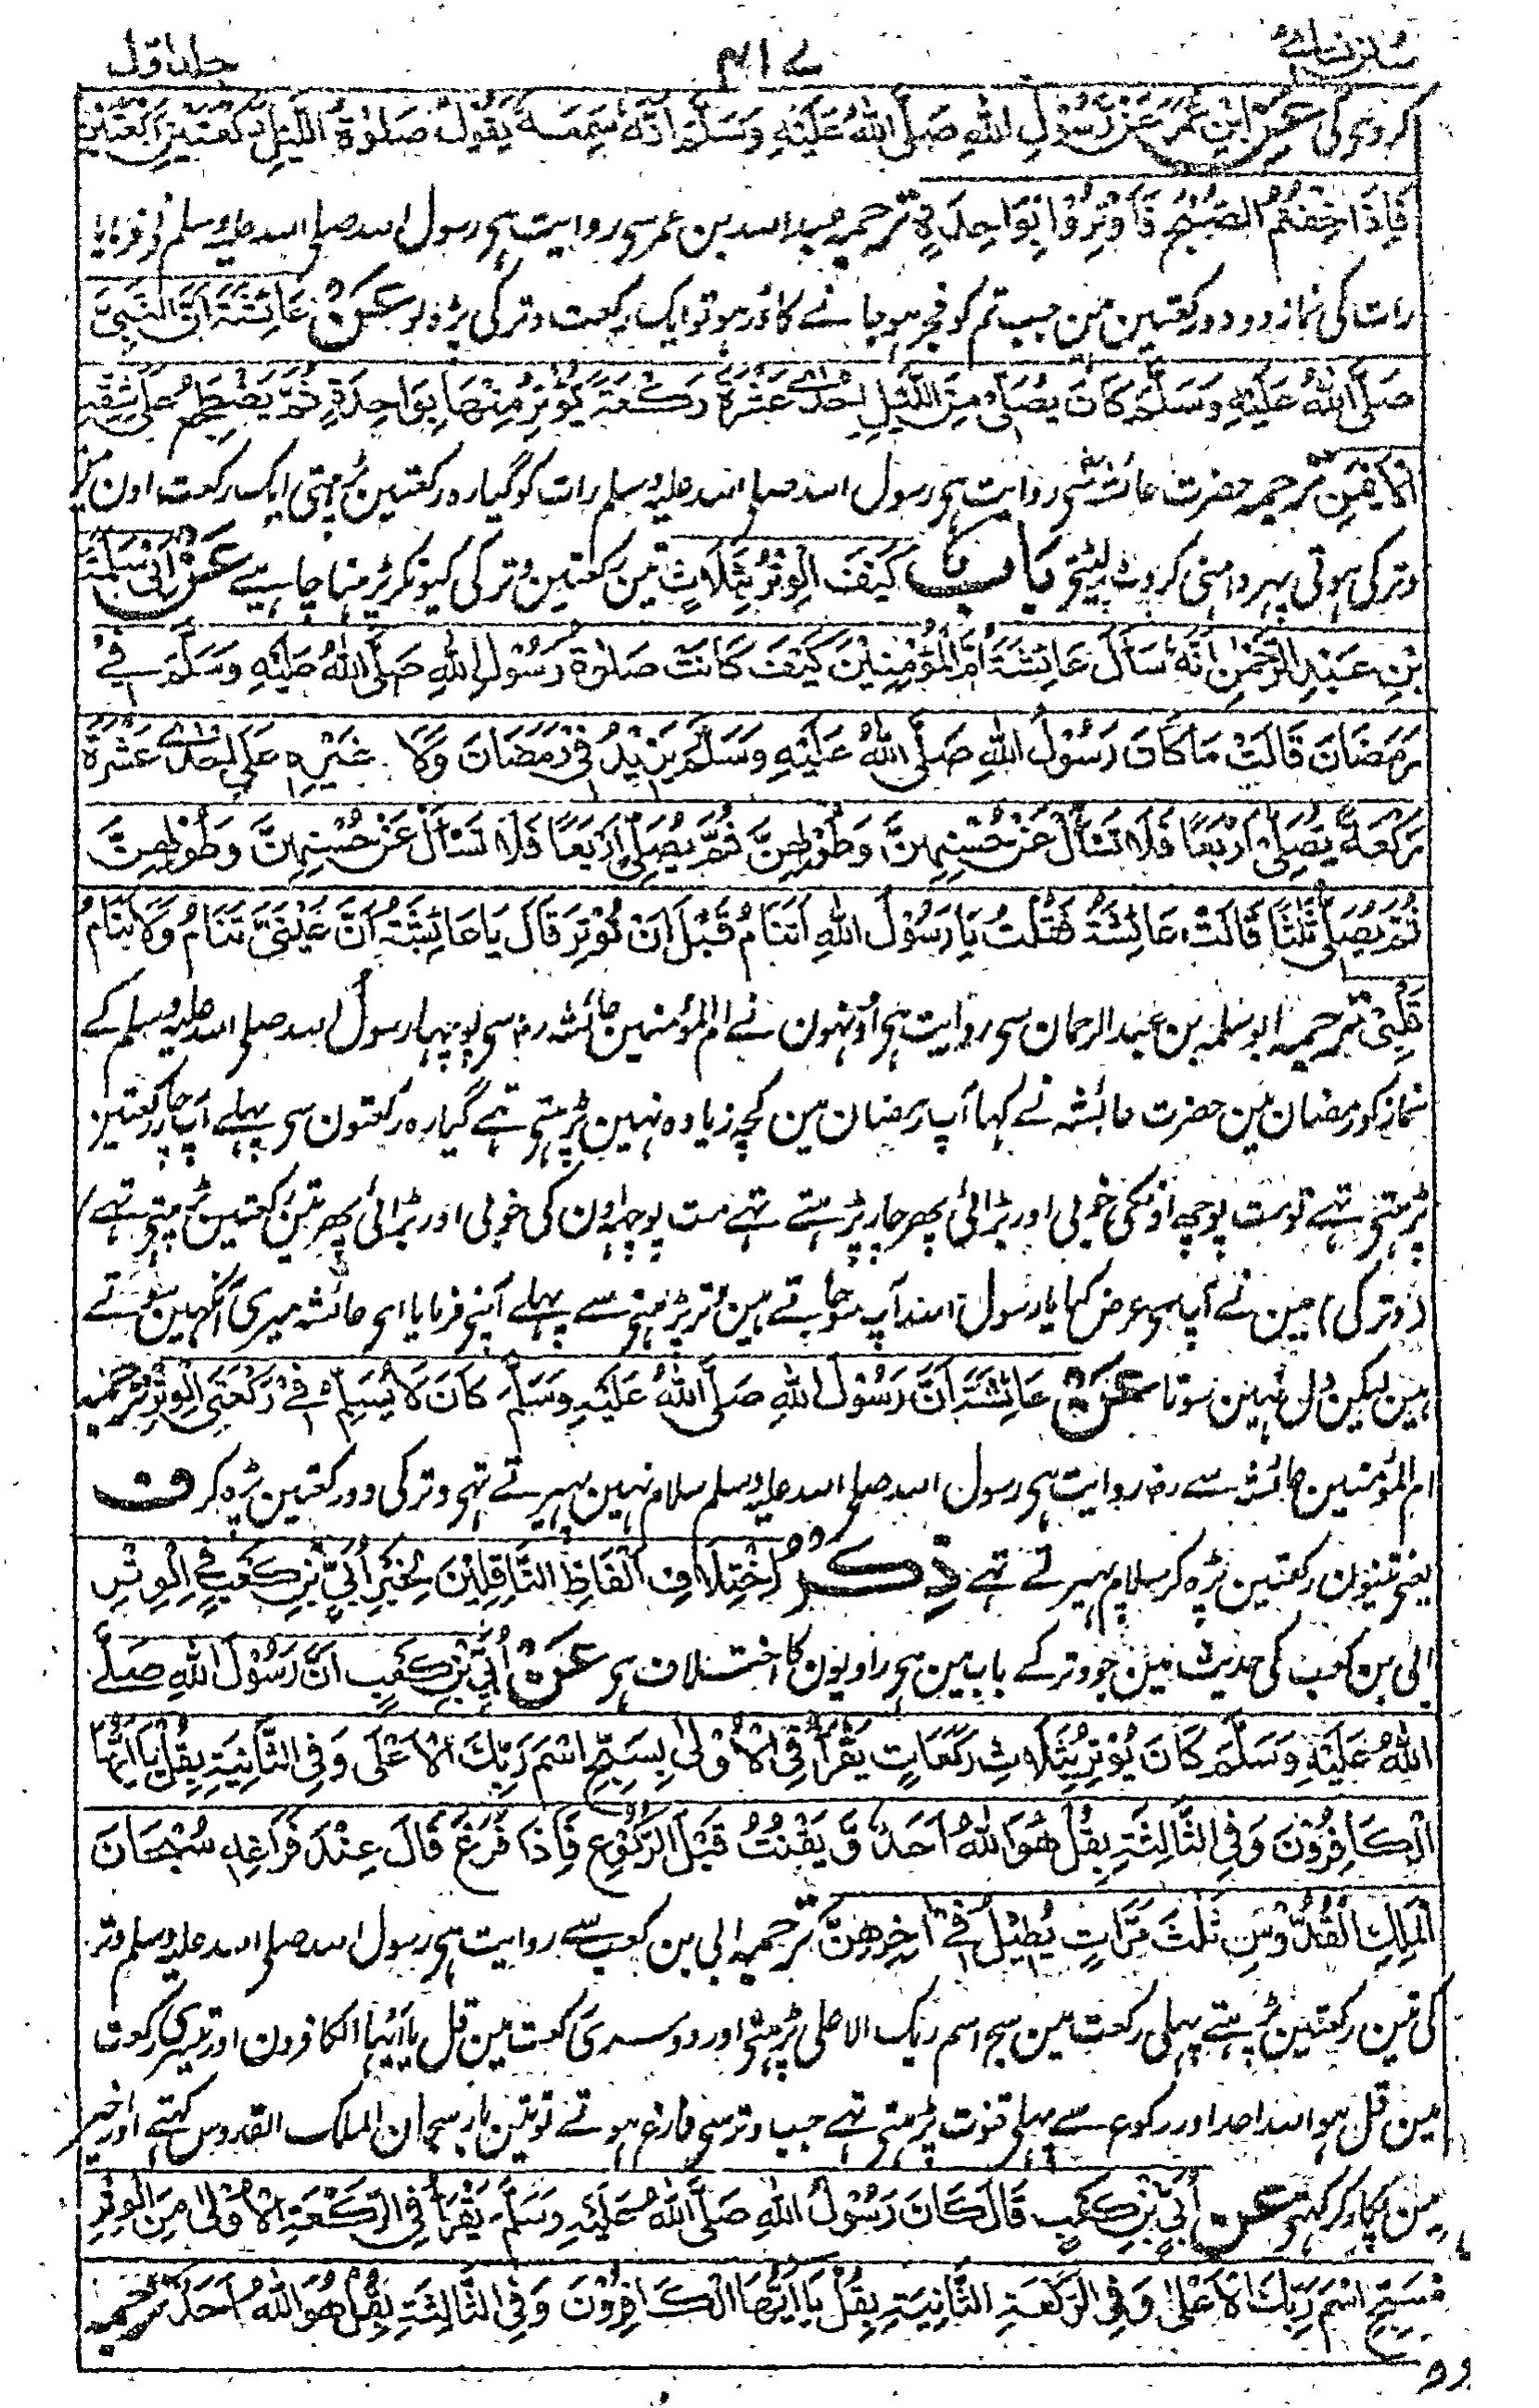 سنن نسائی ۴۱۷ جلد اول
کر دوگی عَنِ ابْنِ عُمَرَ عَنْ رَسُوْلِ اللهِ صَلَّی اللهُ عَلَیْهِ وَسَلَّمَ اَنَّهٗ سَمِعَهٗ یَقُوْلُ صَلٰوةُ اللَّیْلِ رَکْعَتَیْنِ رَکْعَتَیْنِ
فَاِذَا خِفْتُمُ الصُّبْحَ فَاَوْتِرُوْا بِوَاحِدَةٍ ترجمہ عبداللہ بن عمر سے روایت ہی رسول اللہ صلی اللہ علیہ وسلم نی فرمایا
رات کی نماز دو دو رکعتین ہین جب تم کو فجر ہو جانے کا ڈر ہو تو ایک رکعت وتر کی پڑہ لو عَنْ عَائِشَةَ اَنَّ النَّبِیَّ
صَلَّی اللهُ عَلَیْهِ وَسَلَّمَ کَانَ یُصَلِّیْ مِنَ اللَّیْلِ اِحْدٰے عَشْرَةَ رَکْعَةً یُوْتِرُ مِنْهَا بِوَاحِدَةٍ ثُمَّ یَضْطَجِعُ عَلٰی شِقِّهِ
الْاَیْمَنِ ترجمہ حضرت عائشہ سی روایت ہی رسول اللہ صلی اللہ علیہ وسلم رات کو گیارہ رکعتین پڑہتی ایک رکعت اون مین
وتر کی ہوتی پہر داہنی کروٹ لیٹتی بَابٌ کَیْفَ الْوِتْرُ بِثَلَاثٍ تین رکعتین وتر کی کیونکر پڑہنا چاہیے عَنْ اَبِیْ سَلَمَةَ
بْنِ عَبْدِ الرَّحْمٰنِ اَنَّهٗ سَاَلَ عَائِشَةَ اُمَّ الْمُؤْمِنِیْنَ کَیْفَ کَانَتْ صَلٰوةُ رَسُوْلِ اللهِ صَلَّی اللهُ عَلَیْهِ وَسَلَّمَ فِیْ
رَمَضَانَ قَالَتْ مَا کَانَ رَسُوْلُ اللهِ صَلَّی اللهُ عَلَیْهِ وَسَلَّمَ یَزِیْدُ فِیْ رَمَضَانَ وَلَا غَیْرِهٖ عَلٰی اِحْدٰے عَشْرَةَ
رَکْعَةً یُصَلِّیْ اَرْبَعًا فَلَا تَسْاَلْ عَنْ حُسْنِهِنَّ وَطُوْلِهِنَّ ثُمَّ یُصَلِّیْ اَرْبَعًا فَلَا تَسْاَلْ عَنْ حُسْنِهِنَّ وَطُوْلِهِنَّ
ثُمَّ یُصَلِّیْ ثَلٰثًا قَالَتْ عَائِشَةُ فَقُلْتُ یَا رَسُوْلَ اللهِ اَتَنَامُ قَبْلَ اَنْ تُوْتِرَ قَالَ یَا عَائِشَةُ اِنَّ عَیْنَیَّ تَنَامُ وَلَا یَنَامُ
قَلْبِیْ ترجمہ ابو سلمہ بن عبدالرحمان سی روایت ہی اونہون نے ام المؤمنین عائشہ رضہ سی پوچہا رسول اللہ صلی اللہ علیہ وسلم کے
نماز کو رمضان مین حضرت عائشہ نے کہا آپ رمضان مین کچہ زیادہ نہین پڑہتی تہے گیارہ رکعتون سی پہلے آپ چار رکعتین
پڑہتی تہے تو مت پوچہہ اونکی خوبی اور بڑائی پھر چار پڑہتے تہے مت پوچہہ اون کی خوبی اور بڑائی پھر تین رکعتین پڑہتی تہے
(وتر کی) مین نے آپ سی عرض کیا یا رسول اللہ آپ سو جاتے ہین وتر پڑہنی سے پہلے آپنی فرمایا ای عائشہ میری آنکہین سوتے
ہین لیکن دل نہین سوتا عَنْ عَائِشَةَ اَنَّ رَسُوْلَ اللهِ صَلَّی اللهُ عَلَیْهِ وَسَلَّمَ کَانَ لَا یُسَلِّمُ فِیْ رَکْعَتَیِ الْوِتْرِ ترجمہ
ام المؤمنین عائشہ سے رضہ روایت ہی رسول اللہ صلی اللہ علیہ وسلم سلام نہین پہیرتے تہی وتر کی دو رکعتین پڑہ کر ف
یعنی تینون رکعتین پڑہ کر سلام پہیرتے تہے ذِکْرُ اخْتِلَافِ اَلْفَاظِ النَّاقِلِیْنَ لِخَبَرِ اُبَیِّ بْنِ کَعْبٍ فِی الْوِتْرِ
ابی بن کعب کی حدیث مین جو وتر کے باب مین ہی راویون کا اختلاف ہی عَنْ اُبَیِّ بْنِ کَعْبٍ اَنَّ رَسُوْلَ اللهِ صَلَّے
اللهُ عَلَیْهِ وَسَلَّمَ کَانَ یُوْتِرُ بِثَلَاثِ رَکَعَاتٍ یَقْرَأُ فِی الْاُوْلٰی بِسَبِّحِ اسْمَ رَبِّکَ الْاَعْلٰی وَفِی الثَّانِیَةِ بِقُلْ یَا اَیُّهَا
الْکَافِرُوْنَ وَفِی الثَّالِثَةِ بِقُلْ هُوَ اللهُ اَحَدٌ وَیَقْنُتُ قَبْلَ الرُّکُوْعِ فَاِذَا فَرَغَ قَالَ عِنْدَ فَرَاغِهٖ سُبْحَانَ
الْمَلِکِ الْقُدُّوْسِ ثَلٰثَ مَرَّاتٍ یُطِیْلُ فِیْ اٰخِرِهِنَّ ترجمہ ابی بن کعب سے روایت ہی رسول اللہ صلی اللہ علیہ وسلم وتر
کی تین رکعتین پڑہتے پہلی رکعت مین سبح اسم ربک الاعلی پڑہتی اور دوسری رکعت مین قل یا ایہا الکافرون اور تیسری رکعت
مین قل ہو اللہ احد اور رکوع سے پہلی قنوت پڑہتی تہے جب وتر سی فارغ ہوتے تو تین بار سبحان الملک القدوس کہتے اور اخیر
مین پکار کر کہتی عَنْ اُبَیِّ بْنِ کَعْبٍ قَالَ کَانَ رَسُوْلُ اللهِ صَلَّی اللهُ عَلَیْهِ وَسَلَّمَ یَقْرَأُ فِی الرَّکْعَةِ الْاُوْلٰی مِنَ الْوِتْرِ
بِسَبِّحِ اسْمَ رَبِّکَ الْاَعْلٰی وَفِی الرَّکْعَةِ الثَّانِیَةِ بِقُلْ یَا اَیُّهَا الْکَافِرُوْنَ وَفِی الثَّالِثَةِ بِقُلْ هُوَ اللهُ اَحَدٌ ترجمہ